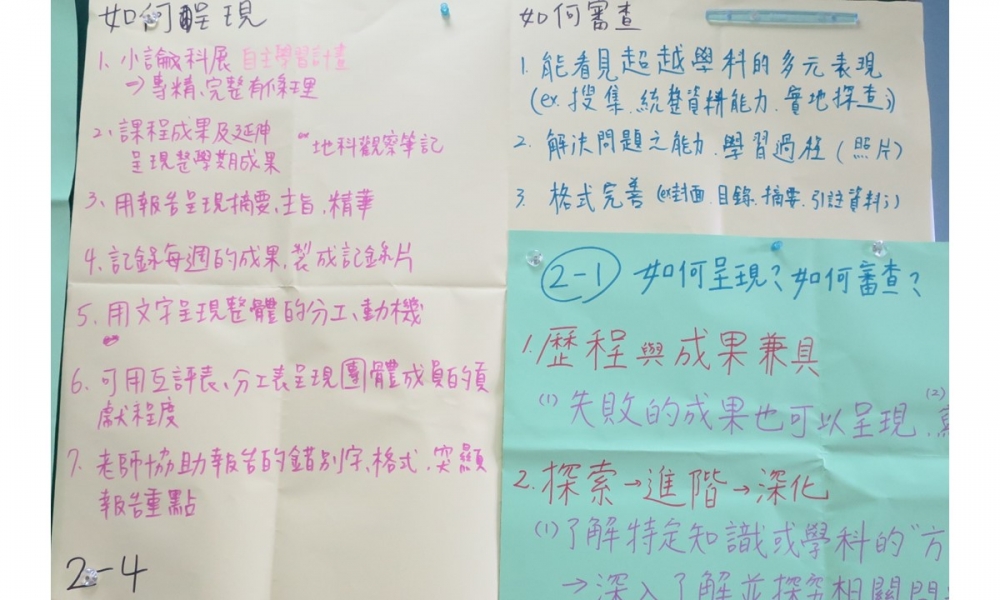 如何呈現
1. 小論文科展 自主學習計畫
→專精、完整有條理
2. 課程成果及延伸
呈現整學期成果
ex 地科觀察筆記
3. 用報告呈現摘要、主旨、精華
4. 記錄每週的成果、製成記錄片
5. 用文字呈現整體的分工、動機
6. 可用互評表、分工表呈現團體成員的貢
獻程度
7. 老師協助報告的錯別字、格式、突顯
報告重點
2-4
如何審查
1. 能看見超越學科的多元表現
(ex. 搜集、統整資料能力、實地探查;)
2. 解決問題之能力、學習過程(照片)
3. 格式完善(ex封面、目錄、摘要、引註資料;)
2-1 如何呈現?如何審查?
1. 歷程與成果兼具
(1) 失敗的成果也可以呈現、(2)
2. 探索→進階→深化
(1) 了解特定知識或學科的"方
→深入了解並探究相關問